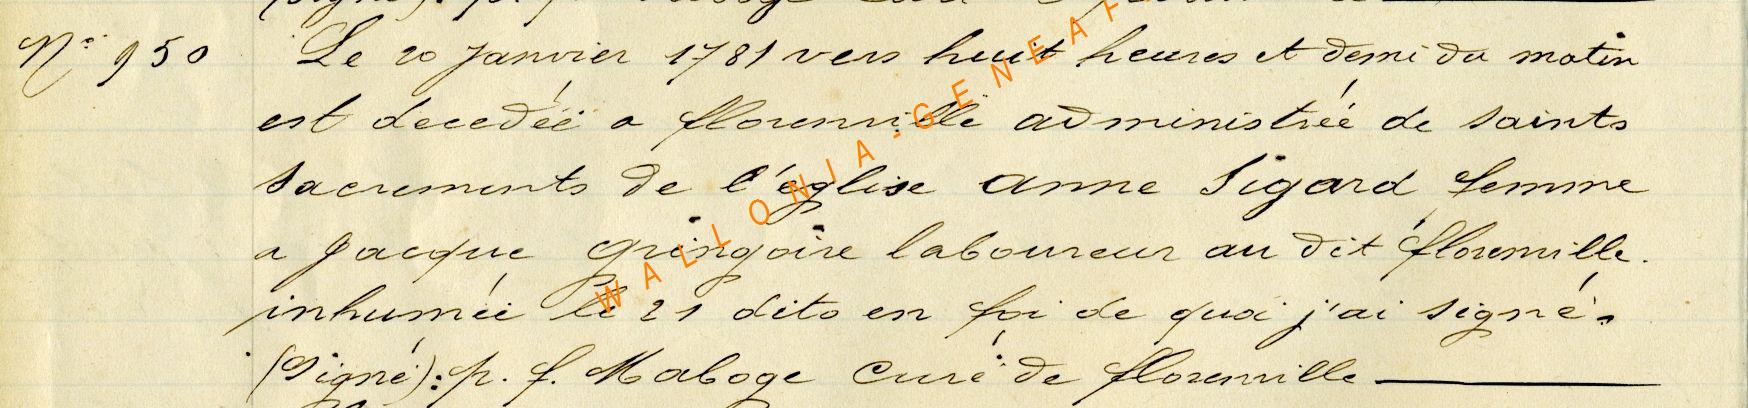 N° 950 Le 20 janvier 1781 vers huit heures et demi du matin
est decedéé a florenville administréé de saints
sacrements de l'église anne Sigard femme
a Jacque gringoire laboureur au dit florenville.
inhuméé le 21 dito en foi de quoi j'ai signé.
(Signé): p. f. Maboge Curé de florenville
WALLONIA-GENEA